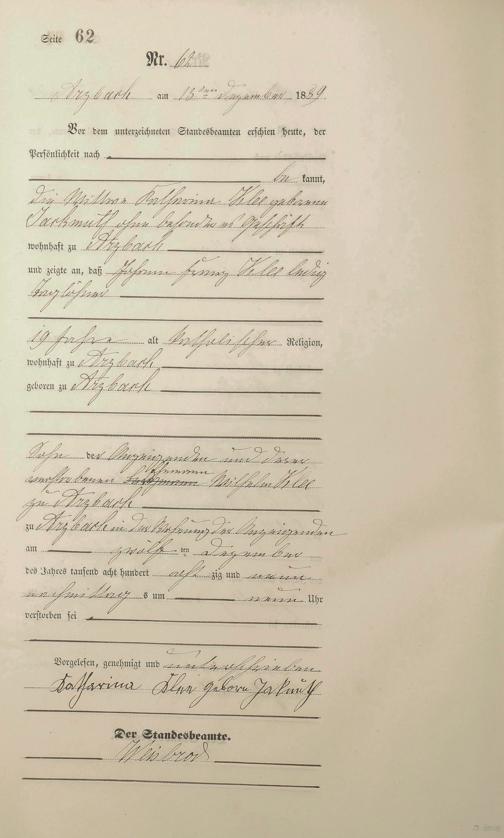 Seite 62
Nr. 62
Arzbach am 13ten Dezember 1889
Vor dem unterzeichneten Standesbeamten erschien heute, der
Persönlichkeit nach
be kannt,
die Wittwe Katharina Klee geborene
Jackmuth ohne besonderes Geschäft
wohnhaft zu Arzbach
und zeigte an, daß Johann Franz Klee ledig
Taglöhner
19 Jahre alt katholischer Religion,
wohnhaft zu Arzbach
geboren zu Arzbach
Sohn der Anzeigenden und deren
verstorbenen Ehemann Wilhelm Klee
zu Arzbach
zu Arzbach in der Wohnung der Anzeigenden
am zwölf ten Dezember
des Jahres tausend acht hundert acht zig und neun
nachmittag s um neun Uhr
verstorben sei
Vorgelesen, genehmigt und unterschrieben
Katharina Klee geborn Jakmuth
Der Standesbeamte.
Weisbrod